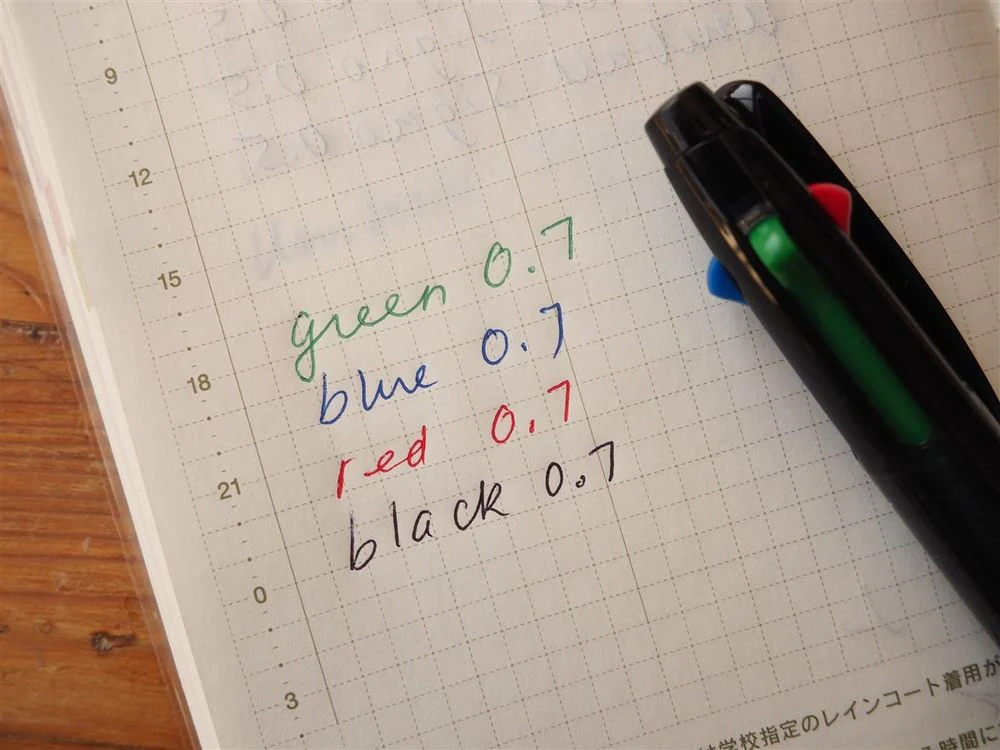 9
12
15
green 0.7
18
blue 0.7
red 0.7
21
black 0.7
0
3
学校指定のレインコート着用が
時間に